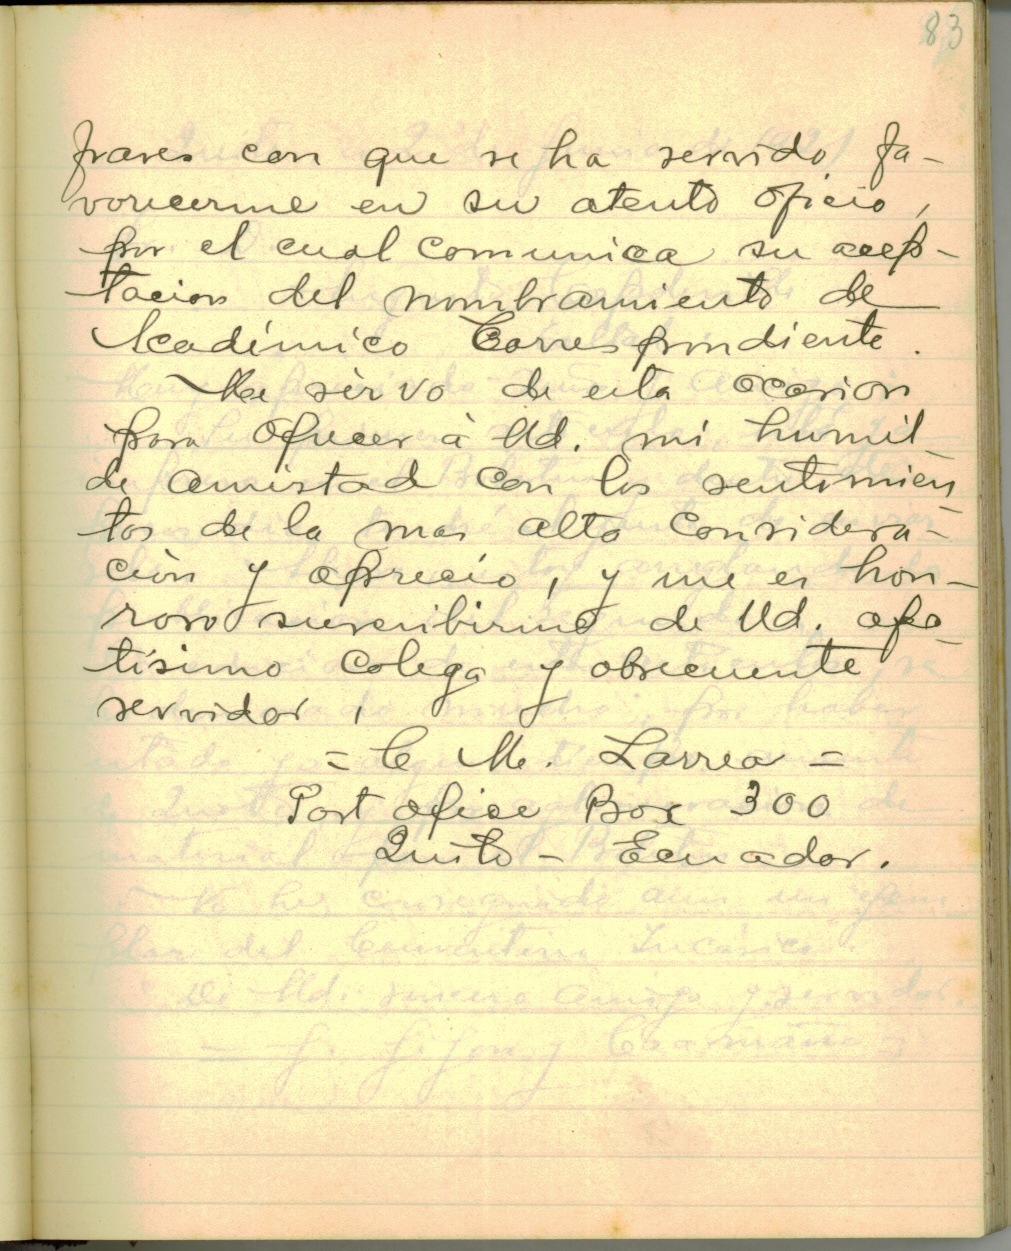 83
frases con que se ha servido fa-
vorecerme en su atento oficio,
por el cual comunica su acep-
tacion del nombramiento de
Académico Correspondiente.
Me sirvo de esta ocasion
para ofrecer à Ud. mi humil
de amistad con los sentimien
tos de la mas alta considera-
ción y aprecio, y me es hon-
roso suscribirme de Ud. afec
tísimo colega y obsecuente
servidor,
= C M. Larrea =
Post ofice Box 300
Quito - Ecuador.